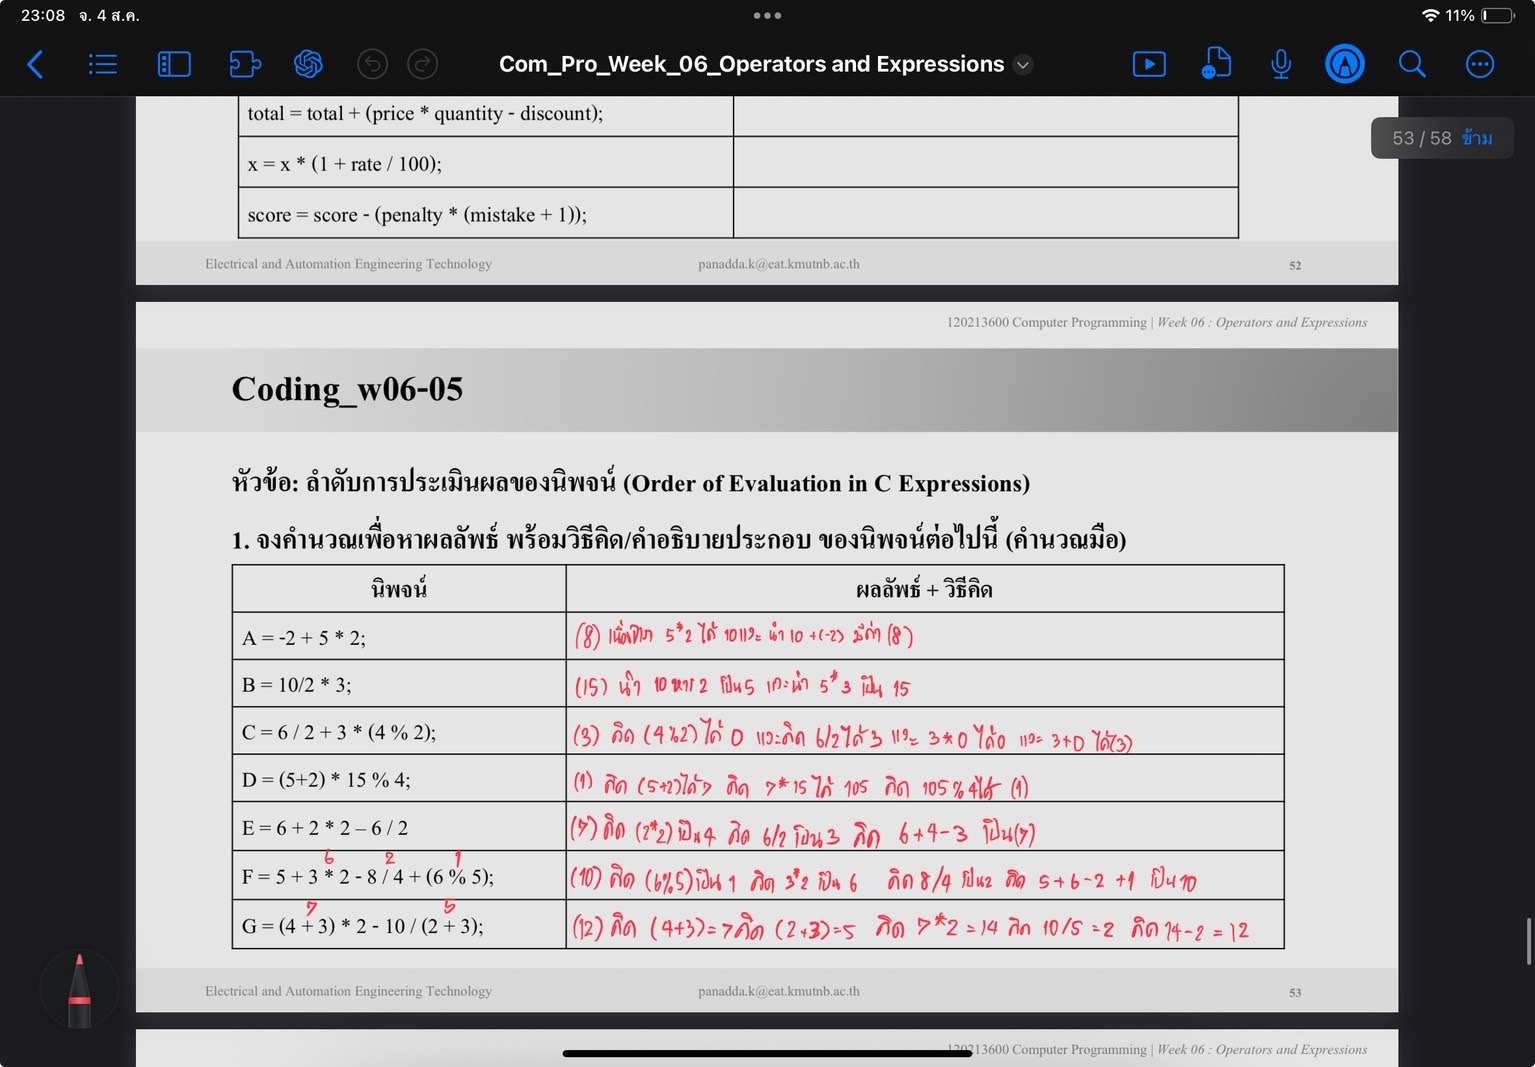 23:08 จ. 4 ส.ค.
11%
Com_Pro_Week_06_Operators and Expressions
53 / 58 ข้าม
total = total + (price * quantity - discount);
x = x * (1 + rate / 100);
score = score - (penalty * (mistake + 1));
Electrical and Automation Engineering Technology panadda.k@eat.kmutnb.ac.th 52
120213600 Computer Programming | Week 06 : Operators and Expressions
Coding_w06-05
หัวข้อ: ลำดับการประเมินผลของนิพจน์ (Order of Evaluation in C Expressions)
1. จงคำนวณเพื่อหาผลลัพธ์ พร้อมวิธีคิด/คำอธิบายประกอบ ของนิพจน์ต่อไปนี้ (คำนวณมือ)
นิพจน์ ผลลัพธ์ + วิธีคิด
A = -2 + 5 * 2; (8) 5*2 ได้ 10 และ นำ 10 + (-2) มีค่า (8)
B = 10/2 * 3; (15) นำ 10 หาร 2 เป็น 5 และนำ 5*3 เป็น 15
C = 6 / 2 + 3 * (4 % 2); (3) คิด (4%2) ได้ 0 และคิด 6/2 ได้ 3 และ 3*0 ได้ 0 และ 3+0 ได้ (3)
D = (5+2) * 15 % 4; (1) คิด (5+2) ได้ 7 คิด 7*15 ได้ 105 คิด 105 % 4 ได้ (1)
E = 6 + 2 * 2 – 6 / 2 (7) คิด (2*2) เป็น 4 คิด 6/2 เป็น 3 คิด 6+4-3 เป็น (7)
6 2 1
F = 5 + 3 * 2 - 8 / 4 + (6 % 5); (10) คิด (6%5) เป็น 1 คิด 3*2 เป็น 6 คิด 8/4 เป็น 2 คิด 5+6-2+1 เป็น 10
7 5
G = (4 + 3) * 2 - 10 / (2 + 3); (12) คิด (4+3)=7 คิด (2+3)=5 คิด 7*2=14 คิด 10/5=2 คิด 14-2=12
Electrical and Automation Engineering Technology panadda.k@eat.kmutnb.ac.th 53
120213600 Computer Programming | Week 06 : Operators and Expressions